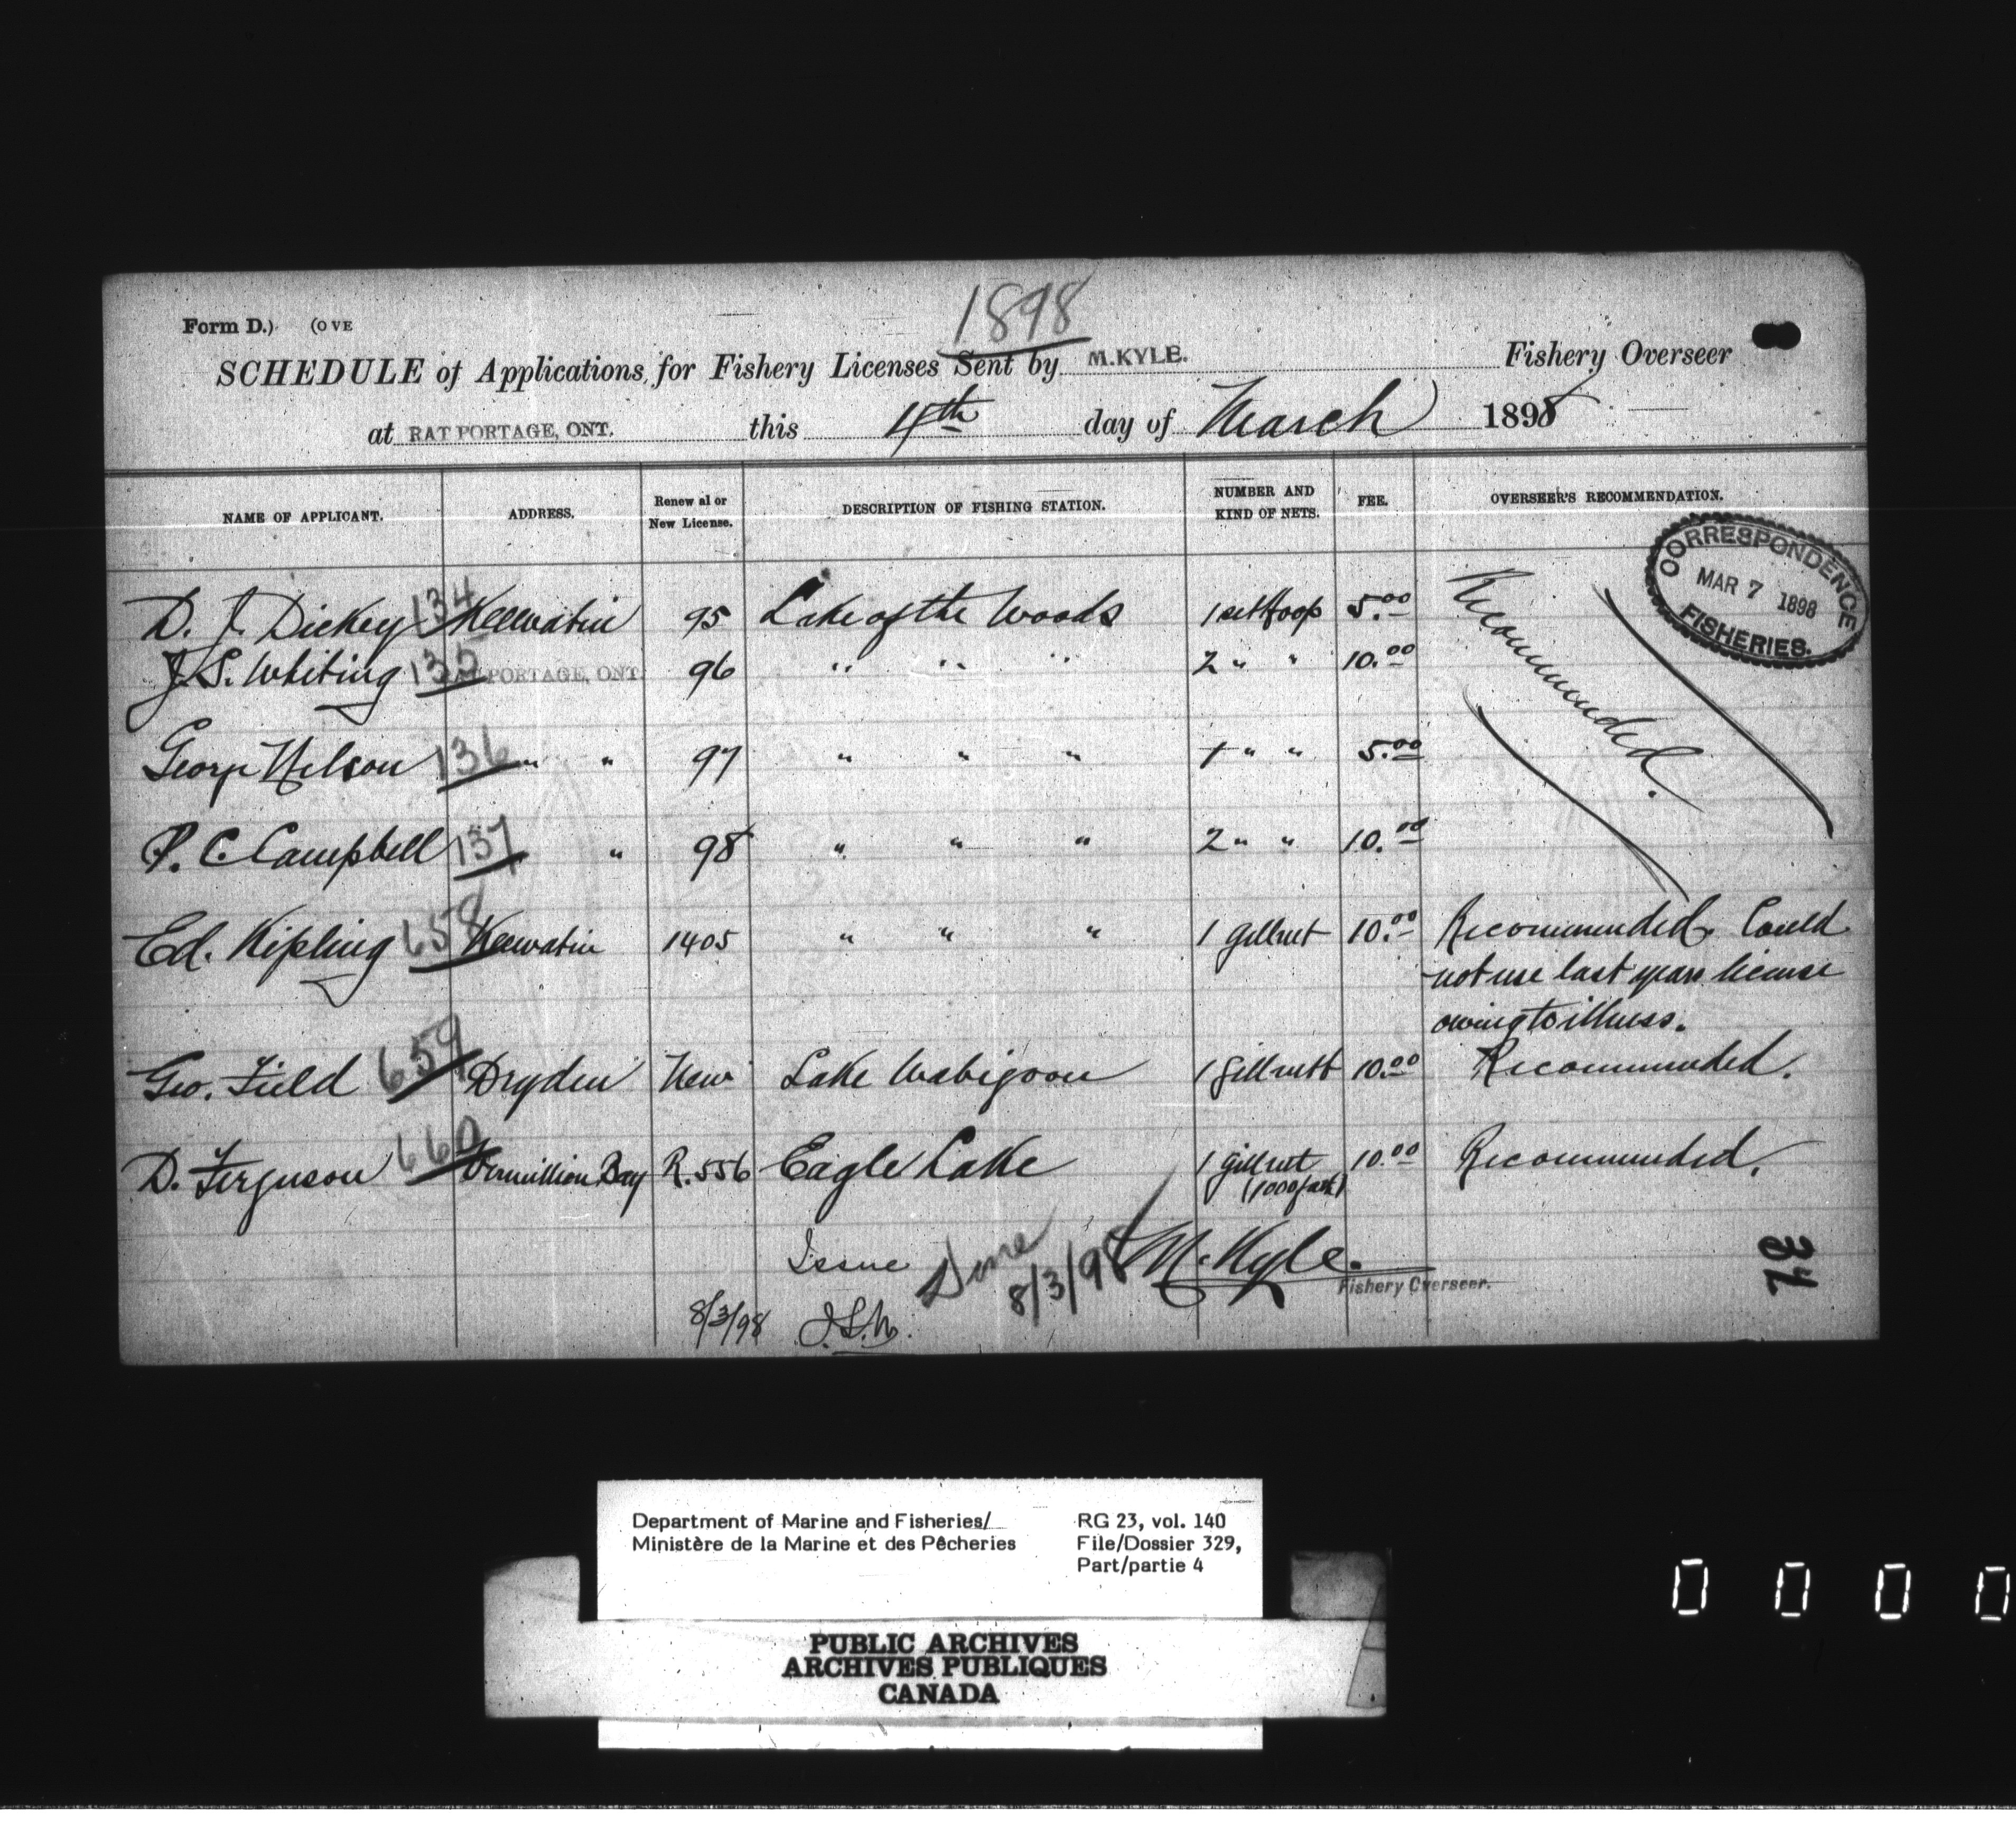 1898
Form D.) (OVE
SCHEDULE of Applications for Fishery Licenses Sent by M. KYLE. Fishery Overseer
at RAT PORTAGE, ONT. this 4th day of March 1898
NAME OF APPLICANT. ADDRESS. Renewal or New License. DESCRIPTION OF FISHING STATION. NUMBER AND KIND OF NETS. FEE. OVERSEER'S RECOMMENDATION.
CORRESPONDENCE MAR 7 1898 FISHERIES.
D. J. Dickey 134 Keewatin 95 Lake of the Woods 1 set Hoop 5.00 Recommended.
J. S. Whiting 135 RAT PORTAGE, ONT. 96 " " " 2 " " 10.00
George Nelson 136 " " 97 " " " 1 " " 5.00
P. C. Campbell 137 " 98 " " " 2 " " 10.00
Ed. Kipling 658 Keewatin 1405 " " " 1 gillnet 10.00 Recommended. Could
not use last years license
owing to illness.
Geo. Field 659 Dryden New Lake Wabigoon 1 gill nett 10.00 Recommended.
D. Ferguson 660 Vermillion Bay R. 556 Eagle Lake 1 gillnet 10.00 Recommended.
(1000 fath)
Issue Done 8/3/98 M. Kyle.
Fishery Overseer.
8/3/98
Department of Marine and Fisheries/ RG 23, vol. 140
Ministère de la Marine et des Pêcheries File/Dossier 329,
Part/partie 4
PUBLIC ARCHIVES
ARCHIVES PUBLIQUES
CANADA
0 0 0 0